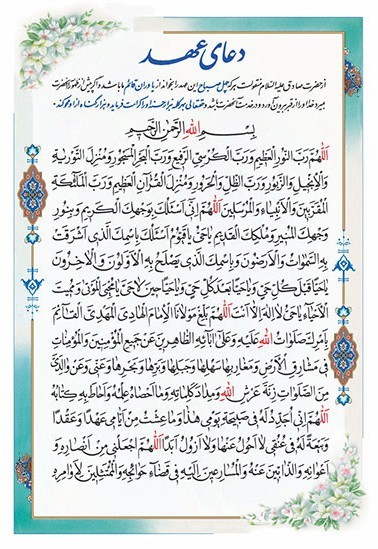 دعای عهد
از حضرت صادق علیه السلام منقولست هرکه چهل صباح این عهد را بخواند از یاوران قائم ما باشد و اگر پیش از ظهور آنحضرت
بمیرد خدا او را از قبر بیرون آورد و در خدمت آنحضرت باشد و حقتعالی بهر کلمه هزار حسنه او را کرامت فرماید و هزار گناه از او محو کند.
بِسْمِ اللهِ الرَّحْمنِ الرَّحیمِ
اَللّهُمَّ رَبَّ النُّورِ الْعَظیمِ وَرَبَّ الْکُرْسِیِّ الرَّفیعِ وَرَبَّ الْبَحْرِ الْمَسْجُورِ وَمُنْزِلَ التَّوْریةِ
وَالْاِنْجیلِ وَالزَّبُورِ وَرَبَّ الظِّلِّ وَالْحَرُورِ وَمُنْزِلَ الْقُرْآنِ الْعَظیمِ وَرَبَّ الْمَلٰئِکَةِ
الْمُقَرَّبینَ وَالْاَنْبِیٰاءِ وَالْمُرْسَلینَ اَللّهُمَّ اِنّی اَسْئَلُکَ بِوَجْهِکَ الْکَریمِ وَبِنُورِ
وَجْهِکَ الْمُنیرِ وَمُلْکِکَ الْقَدیمِ یٰا حَیُّ یٰا قَیُّومُ اَسْئَلُکَ بِاسْمِکَ الَّذی اَشْرَقَتْ
بِهِ السَّمٰوٰاتُ وَالْاَرَضُونَ وَبِاسْمِکَ الَّذی یَصْلَحُ بِهِ الْاَوَّلُونَ وَالْاٰخِرُونَ
یٰا حَیّاً قَبْلَ کُلِّ حَیٍّ وَیٰا حَیّاً بَعْدَ کُلِّ حَیٍّ وَیٰا حَیّاً حینَ لٰا حَیَّ یٰا مُحْیِیَ الْمَوْتیٰ وَمُمیتَ
الْاَحْیٰاءِ یٰا حَیُّ لٰا اِلٰهَ اِلّٰا اَنْتَ اَللّهُمَّ بَلِّغْ مَوْلٰانَا الْاِمٰامَ الْهٰادِیَ الْمَهْدِیَّ الْقٰائِمَ
بِاَمْرِکَ صَلَوٰاتُ اللهِ عَلَیْهِ وَعَلیٰ اٰبٰائِهِ الطّٰاهِرینَ عَنْ جَمیعِ الْمُؤْمِنینَ وَالْمُؤْمِنٰاتِ
فی مَشٰارِقِ الْاَرْضِ وَمَغٰارِبِهٰا سَهْلِهٰا وَجَبَلِهٰا وَبَرِّهٰا وَبَحْرِهٰا وَعَنّی وَعَنْ وٰالِدَیَّ
مِنَ الصَّلَوٰاتِ زِنَةَ عَرْشِ اللهِ وَمِدٰادَ کَلِمٰاتِهِ وَمٰا اَحْصٰاهُ عِلْمُهُ وَاَحٰاطَ بِهِ کِتٰابُهُ
اَللّهُمَّ اِنّی اُجَدِّدُ لَهُ فی صَبیحَةِ یَوْمی هٰذٰا وَمٰا عِشْتُ مِنْ اَیّٰامی عَهْداً وَعَقْداً
وَبَیْعَةً لَهُ فی عُنُقی لٰا اَحُولُ عَنْهٰا وَلٰا اَزُولُ اَبَداً اَللّهُمَّ اجْعَلْنی مِنْ اَنْصٰارِهِ وَ
اَعْوٰانِهِ وَالذّٰابّینَ عَنْهُ وَالْمُسٰارِعینَ اِلَیْهِ فی قَضٰاءِ حَوٰائِجِهِ وَالْمُمْتَثِلینَ لِاَوٰامِرِهِ